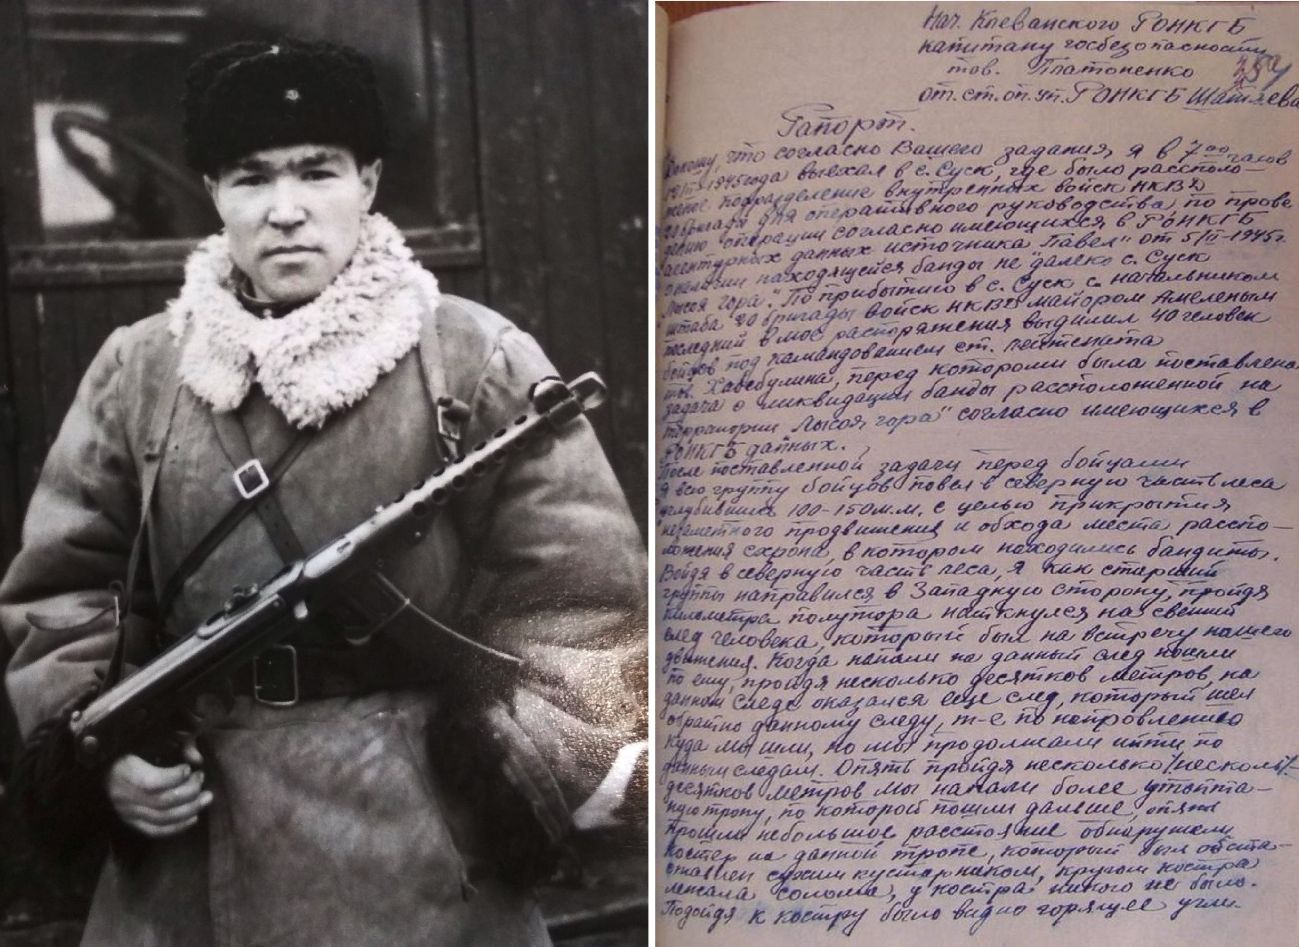 Нач. Клеванского РОНКГБ
капитану госбезопасности
тов. Платоненко
от ст. оп. уп. РОНКГБ Шатаева
Рапорт.
Доношу, что согласно Вашего задания я в 7 00 часов
1945 года выехал в с. Суск, где было располо-
женое подразделение внутренных войск НКВД
бригада для оперативного руководства по прове
дению операции согласно имеющихся в РОНКГБ
агентурных данных источника "Павел" от 5/II-1945г.
о наличии находящуейся банды не далеко с. Суск
"Лысоя гора". По прибытию в с. Суск с начальником
штаба 20 бригады войск НКВД майором Амеленым
последний в мое распоряжения выдилил 40 человек
бойцов под командованием ст. лейтената
тов. Хабибулина, перед которыми была поставлена
задача о ликвидации банды рассположенной на
территории "Лысоя гора" согласно имеющихся в
РОНКГБ данных.
После поставленной задачи перед бойцами
я всю группу бойцов повел в северную часть леса
углубившись 100-150 м.м. с целью прикрытия
незаметного продвишения и обхода места расспо-
ложения схрона, в котором находились бандиты.
Войдя в северную часть леса, я как старший
группы направился в Западную сторону, пройдя
километра полутора наткнулся на свежий
след человека, который был на встречу нашего
движения. Когда напали на данный след пошли
по ему, пройдя несколько десятков метров, на
данном следе оказался еще след, который шел
обратно данному следу, т-е по непровлению
куда мы шли, но мы продолжали итти по
данным следам. Опять пройдя несколько /несколь/-
десятков метров мы напали более утопта-
ную тропу, по которой пошли дальше, опять
прошли небольшое расстояние обнаружели
костер на данной тропе, который был обста-
ставлен сухим кустарником, кругом костра
лежала солома, у костра никого не было.
Подойдя к костру было видно горящее угли.